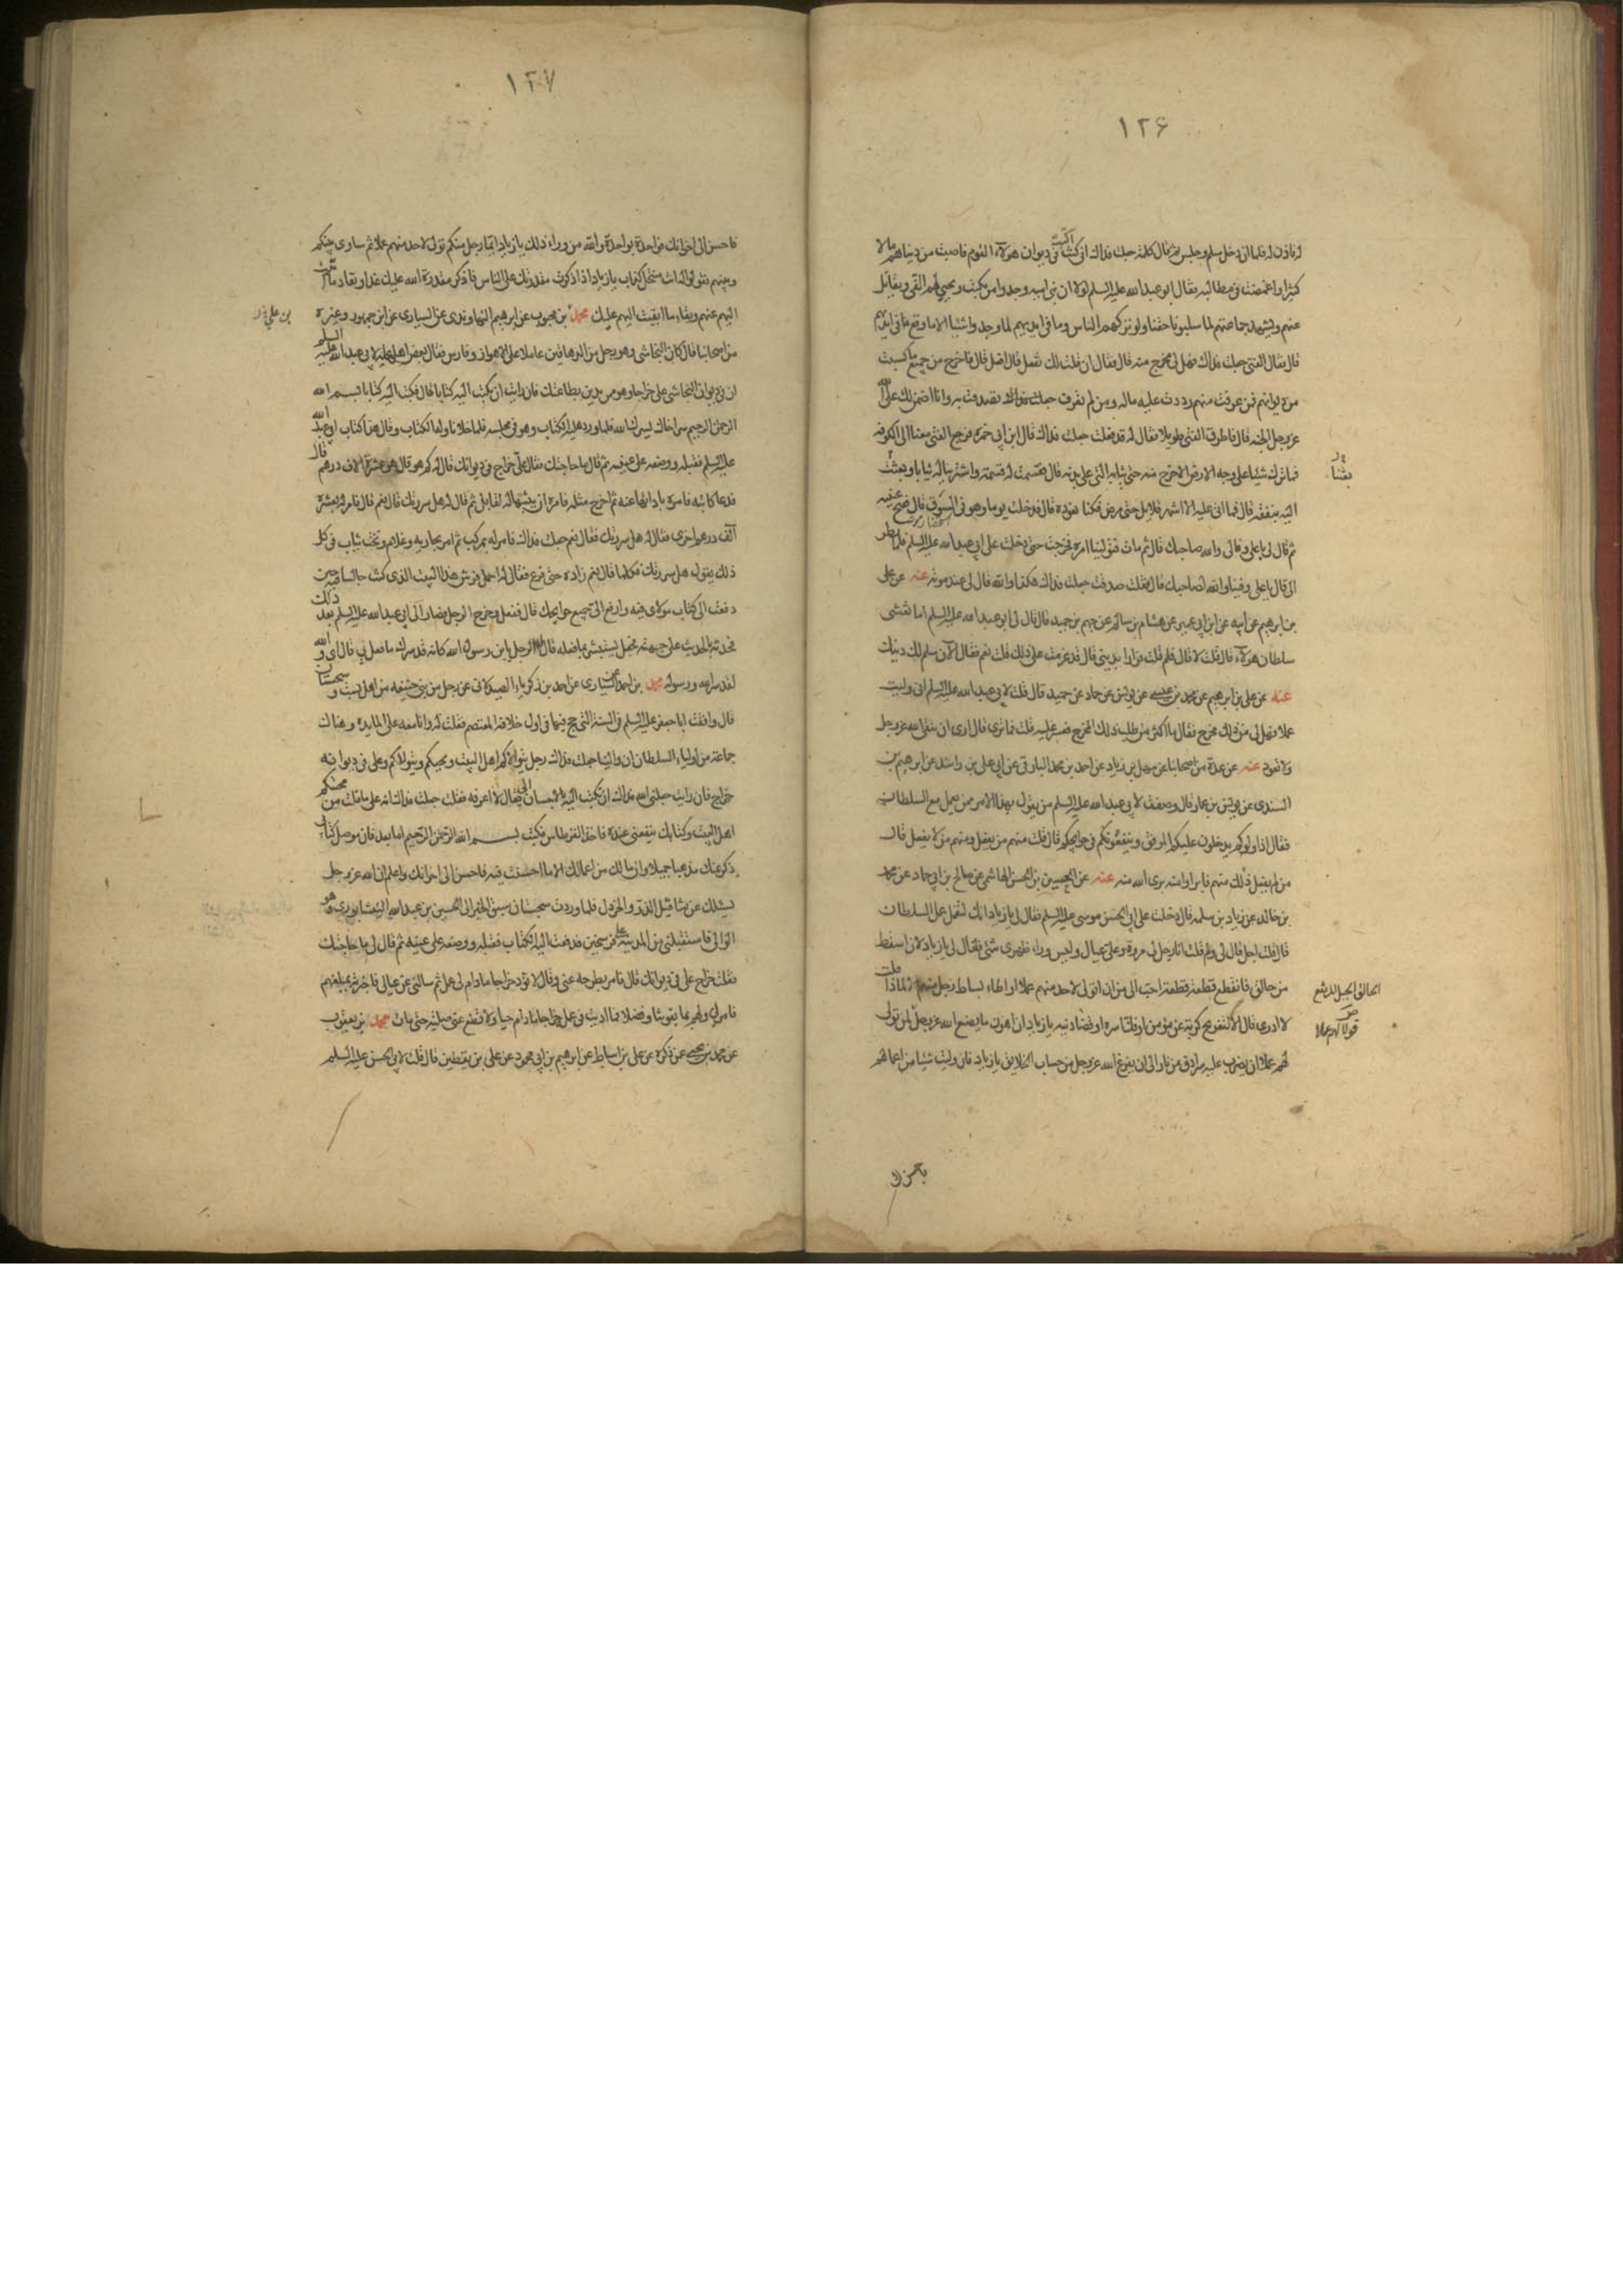 ١٢۶
له فاذن له فلما ان دخل سلم وجلس ثم قال كلمة جعلت فداك انى كنت فى ديوان هولاء القوم فاصبت من دنياهم مالا
كثيرا واغمضت فى مطالبه فقال ابو عبد الله عليه السلم لولا ان بنى اميه وجدوا من يكتب ويجبى لهم الفئ ويقاتل
عنهم ويشهد جماعتهم لما سلبونا حقنا ولو تركهم الناس وما فى ايديهم لما وجدوا شيئا الا ما وقع فى ايديهم
قال فقال الفتى جعلت فداك فهل لى مخرج منه قال فقال ان قلت لك تفعل قال افعل قال فاخرج من جميع ما كسبت
من ديوانهم فمن عرفت منهم رددت عليه ماله ومن لم تعرف تصدقت به وانا اضمن لك على الله
عز وجل الجنه قال فاطرق الفتى طويلا فقال له قد فعلت جعلت فداك قال ابن ابى حمزه فرجع الفتى معنا الى الكوفه
فما ترك شيئا على وجه الارض الا خرج منه حتى ثيابه التى على بدنه قال فقسمت له قسمة واشترينا له ثيابا وبعثت
بعثنا
اليه بنفقه قال فما اتى عليه الا اشهر قلايل حتى مرض فكنا نعوده قال فدخلت يوما وهو فى السوق قال ففتح عينيه
ثم قال لى يا على وفا لى والله صاحبك قال ثم مات فتولينا امره فخرجت حتى دخلت على ابى عبد الله عليه السلم فلما نظر
الى قال يا على وفينا والله لصاحبك قال فقلت صدقت جعلت فداك هكذا والله قال لى عند موته عنه عن على
بن ابرهيم عن ابيه عن ابن ابى عمير عن هشام بن سالم عن جهم بن حميد قال قال لى ابو عبد الله عليه السلم اما تغشى
سلطان هولاء قال قلت لا قال فلم قلت فرارا بدينى قال قد عزمت على ذلك قلت نعم فقال الآن سلم لك دينك
عنه عن على بن ابرهيم عن محمد بن عيسى عن يونس عن حماد عن حميد قال قلت لابى عبد الله عليه السلم انى وليت
عملا فهل لى من ذلك مخرج فقال ما اكثر من طلب ذلك المخرج فعسر عليه قلت فما ترى قال ارى ان تتقى الله عز وجل
ولا تعود عنه عن عدة من اصحابنا عن سهل بن زياد عن احمد بن محمد البارقى عن ابى على بن راشد عن ابرهيم بن
السندى عن يونس بن عمار قال وصفت لابى عبد الله عليه السلم من يقول بهذا الامر ممن يعمل مع السلطان
فقال اذا ولوكم يدخلون عليكم المرفق وينفعونكم فى حوايجكم قال قلت منهم من يفعل ومنهم من لا يفعل قال
من لم يفعل ذلك منهم فابراوا منه برى الله منه عنه عن الحسين بن الحسن الهاشمى عن صالح بن ابى حماد عن محمد
بن خالد عن زياد بن سلمه قال دخلت على ابى الحسن موسى عليه السلم فقال لى يا زياد انك لتعمل عمل السلطان
قال قلت اجل قال لى ولم قلت انا رجل لى مروة وعلى عيال وليس وراء ظهرى شئ فقال لى يا زياد لان اسقط
من حالق فانقطع قطعة قطعة احب الى من ان اتولى لاحد منهم عملا او اطاء بساط رجل منهم الا لماذا قلت
الحالق الجبل المرتفع
لا ادرى قال الا لتفريج كربة عن مؤمن او فك اسره او قضاء دينه يا زياد ان اهون ما يصنع الله عز وجل لمن تولى
لهم عملا ان يضرب عليه سرادق من نار الى ان يفرغ الله عز وجل من حساب الخلايق يا زياد فان وليت شيئا من اعمالهم
١٢٧
فاحسن الى اخوانك فواحدة بواحدة والله من وراء ذلك يا زياد ايما رجل منكم تولى لاحد منهم عملا ثم ساوى بينكم
وبينهم فقولوا له انت منتحل كذاب يا زياد اذا ذكرت مقدرتك على الناس فاذكر مقدرة الله عليك غدا ونفاد ما اتيت
اليهم عنهم وبقاء ما ابقيت اليهم عليك محمد بن محبوب عن ابرهيم النهاوندى عن السيارى عن ابن جمهور وغيره
بن على
من اصحابنا قال كان النجاشى وهو رجل من الدهاقين عاملا على الاهواز وفارس فقال بعض اهل عمله لابى عبد الله عليه السلم
ان فى ديوان النجاشى على خراجا وهو ممن يدين بطاعتك فان رايت ان تكتب اليه كتابا قال فكتب اليه كتابا بسم الله
الرحمن الرحيم سر اخاك يسرك الله فلما ورد عليه الكتاب وهو فى مجلسه فلما خلا ناوله الكتاب وقال هذا كتاب ابى عبد الله
عليه السلم فقبله ووضعه على عينيه ثم قال ما حاجتك فقال على خراج فى ديوانك قال له كم هو قال هو عشرة الاف درهم قال
فدعا كاتبه فامره بادائها عنه ثم اخرج مثله فامره ان يثبتها له لقابل ثم قال له هل سررتك قال نعم قال فامر له بعشرة
آلف درهم اخرى فقال له هل سررتك فقال نعم جعلت فداك فامر له بمركب ثم امر بجاريه وغلام وتخت ثياب فى كل
ذلك يقول هل سررتك فكلما قال نعم زاده حتى فرغ فقال له احمل فرش هذا البيت الذى كنت جالسا فيه حين
دفعت الى كتاب مولاى فيه وارفع الى جميع حوايجك قال ففعل وخرج الرجل فصار الى ابى عبد الله عليه السلم بعد ذلك
فحدثه بالحديث على جهته فجعل يستبشر بما فعله قال الرجل يا بن رسول الله كانه قد سرك ما فعل بى قال اى والله
لقد سر الله ورسوله محمد بن احمد السيارى عن احمد بن زكرياء الصيدلانى عن رجل من بنى حنيفه من اهل بست وسجستان
قال وافقت ابا جعفر عليه السلم فى السنة التى حج فيها فى اول خلافة المعتصم فقلت له وانا معه على المايده وهناك
جماعة من اولياء السلطان ان والينا جعلت فداك رجل يتوالاكم اهل البيت ويحبكم ويتولاكم وعلى فى ديوانه
خراج فان رايت جعلنى الله فداك ان تكتب اليه بالاحسان الى فقال لا اعرفه فقلت جعلت فداك انه على ما قلت من محبتكم
اهل البيت وكتابك ينفعنى عنده فاخذ القرطاس فكتب بسم الله الرحمن الرحيم اما بعد فان موصل كتابى
ذكر عنك مذهبا جميلا وان ما لك من اعمالك الا ما احسنت فيه فاحسن الى اخوانك واعلم ان الله عز وجل
يسئلك عن مثاقيل الذر والخردل فلما وردت سجستان سبق الخبر الى الحسين بن عبد الله النيشابورى وهو
الوالى فاستقبلنى من المدينه على فرسخين فدفعت اليه الكتاب فقبله ووضعه على عينيه ثم قال لى ما حاجتك
فقلت خراج على فى ديوانك قال فامر بطرحه عنى وقال لا تؤد خراجا مادام لى عمل ثم سالنى عن عيالى فاخبرته بمبلغهم
فامر لى ولهم بما يقوتنا وفضلا فما اديت فى عمله خراجا مادام حيا ولا قطع عنى صلته حتى مات محمد بن يعقوب
عن محمد بن يحيى عمن ذكره عن على بن اسباط عن ابرهيم بن ابى محمود عن على بن يقطين قال قلت لابى الحسن عليه السلم